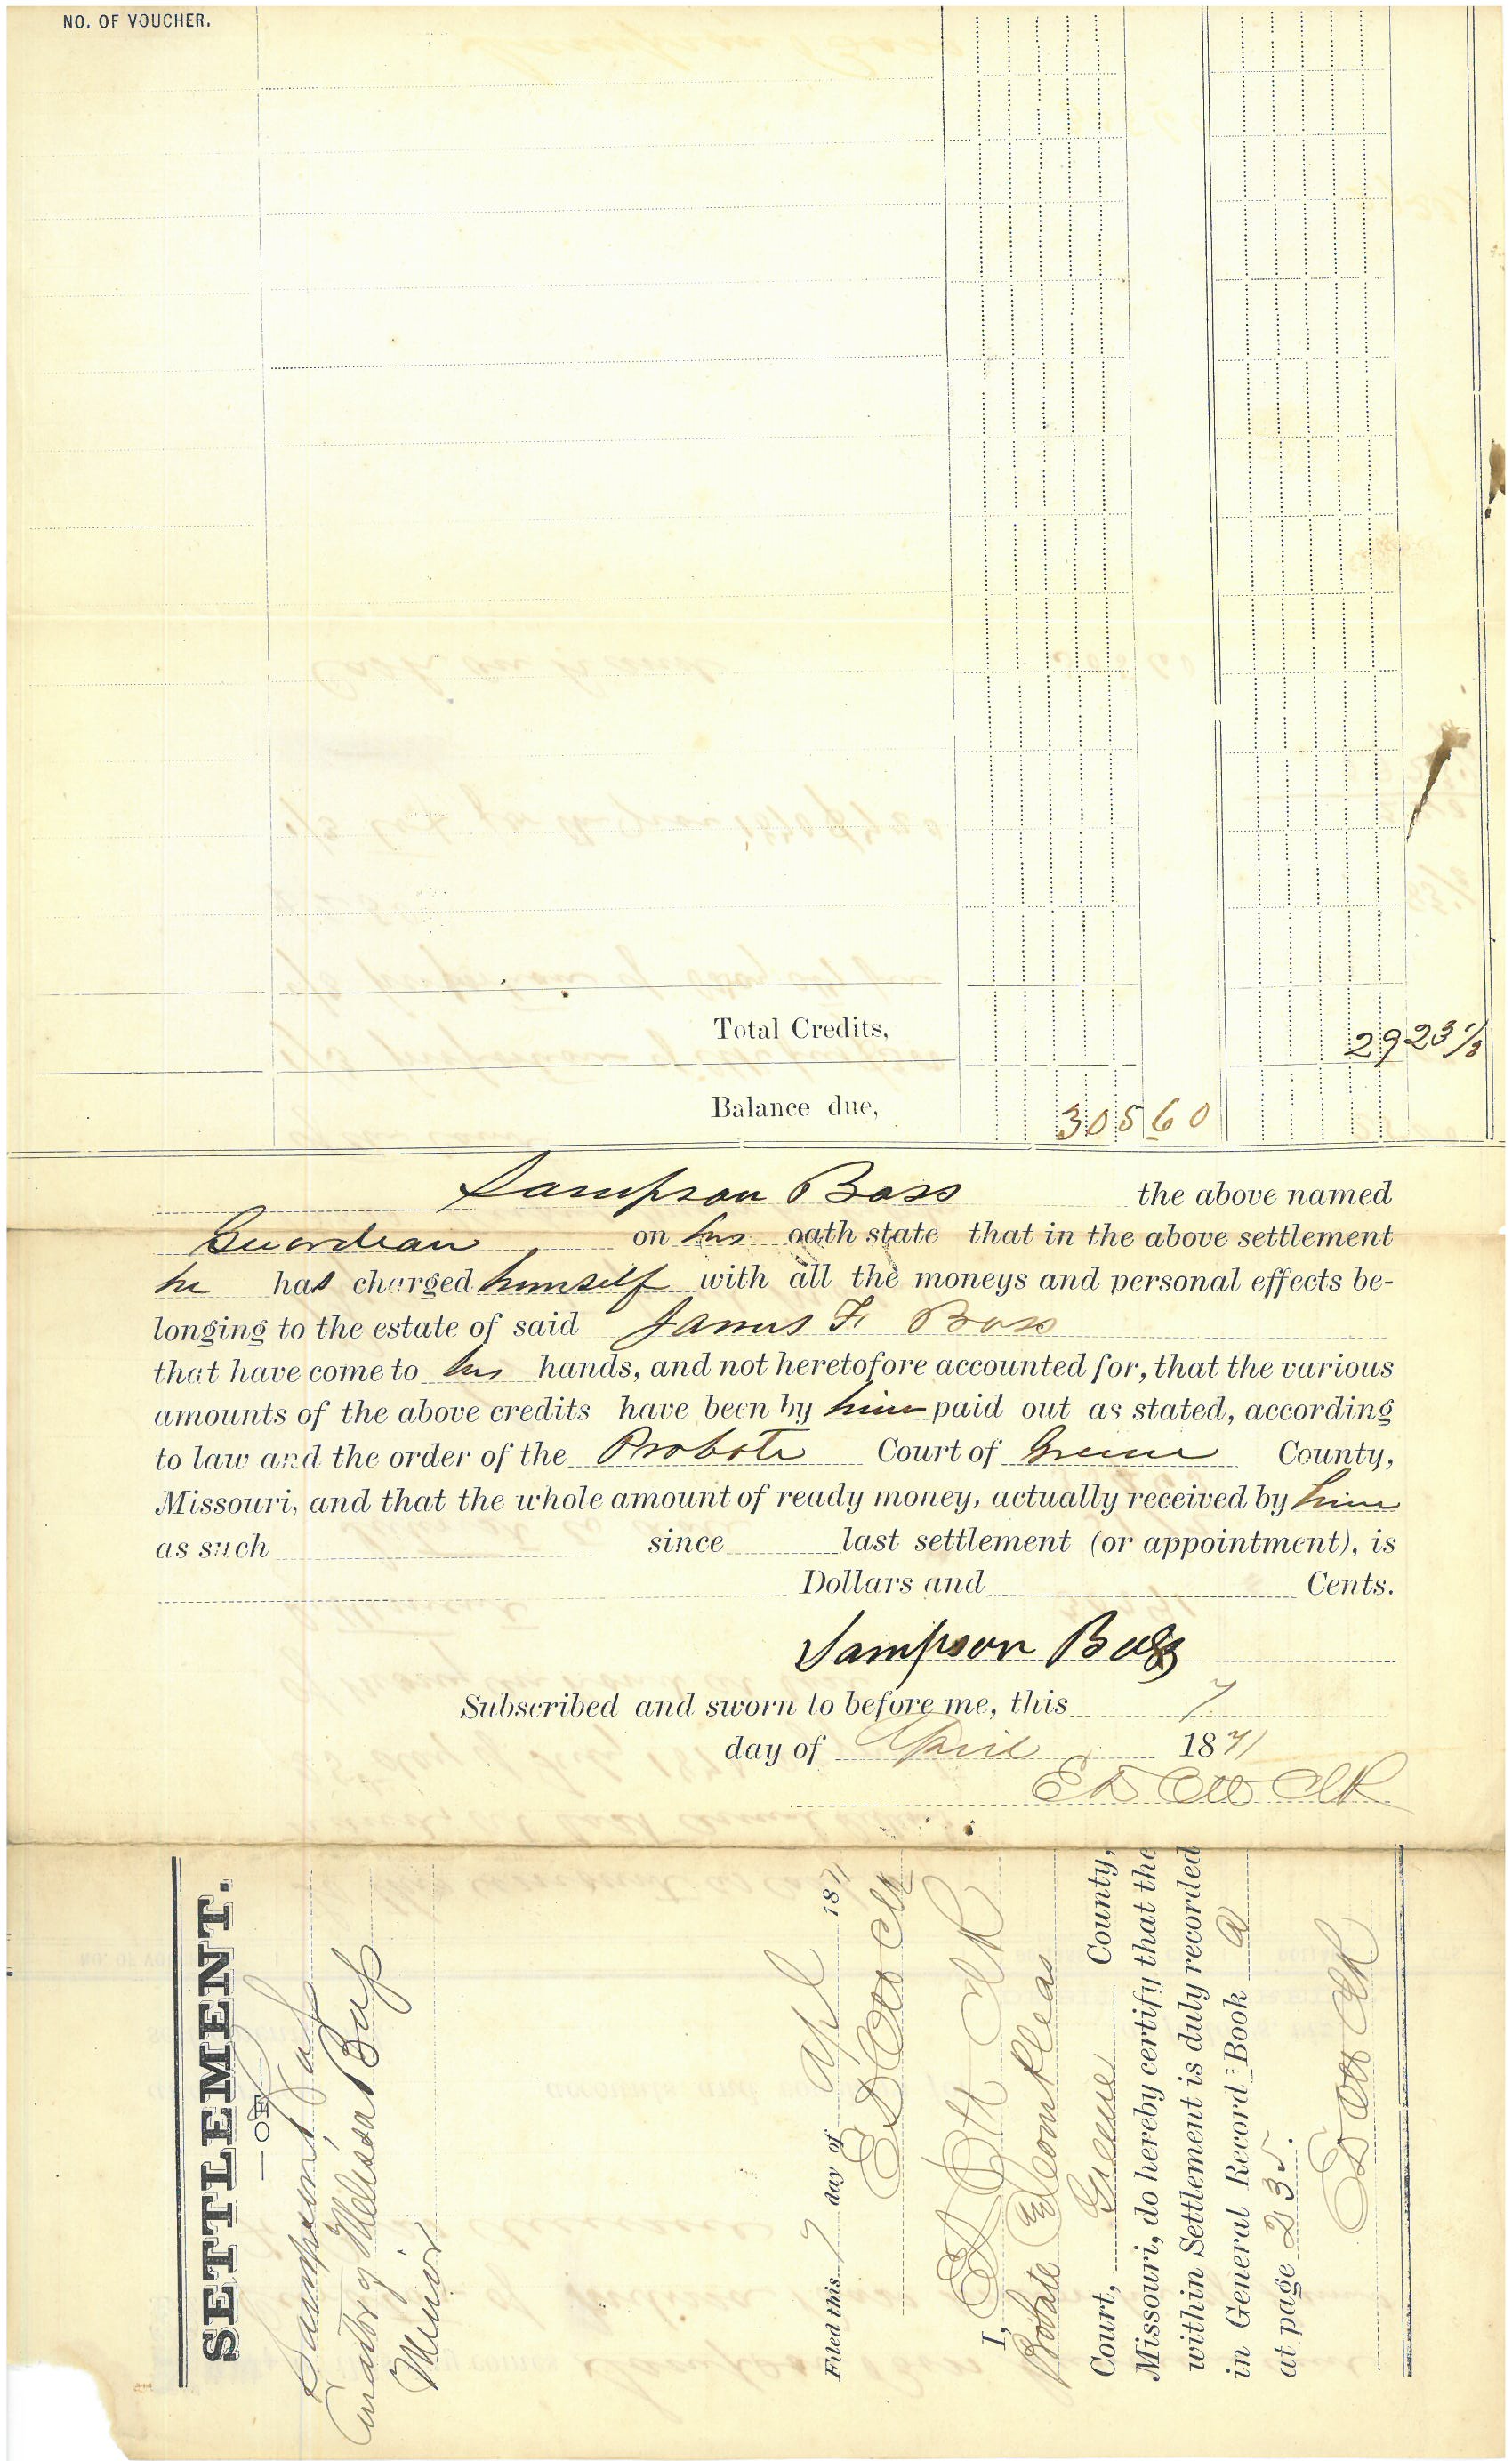 NO. OF VOUCHER.
Total Credits, 29 23 1/3
Balance due, 305 60
Sampson Bass the above named
Guardian on his oath state that in the above settlement
he has charged himself with all the moneys and personal effects be-
longing to the estate of said James F. Bass
that have come to his hands, and not heretofore accounted for, that the various
amounts of the above credits have been by him paid out as stated, according
to law and the order of the Probate Court of Greene County,
Missouri, and that the whole amount of ready money, actually received by him
as such since last settlement (or appointment), is
Dollars and Cents.
Sampson Bass
Subscribed and sworn to before me, this 7
day of April 1871
E D Ott Clk
SETTLEMENT.
—OF—
Sampson Bass
Curator of Melissa Bass
Minor
Filed this 7 day of Apl 1871
E D Ott Clk
I, E D Ott Clk
Probate & Common Pleas
Court, Greene County,
Missouri, do hereby certify that the
within Settlement is duly recorded
in General Record Book A
at page 235.
E D Ott Clk